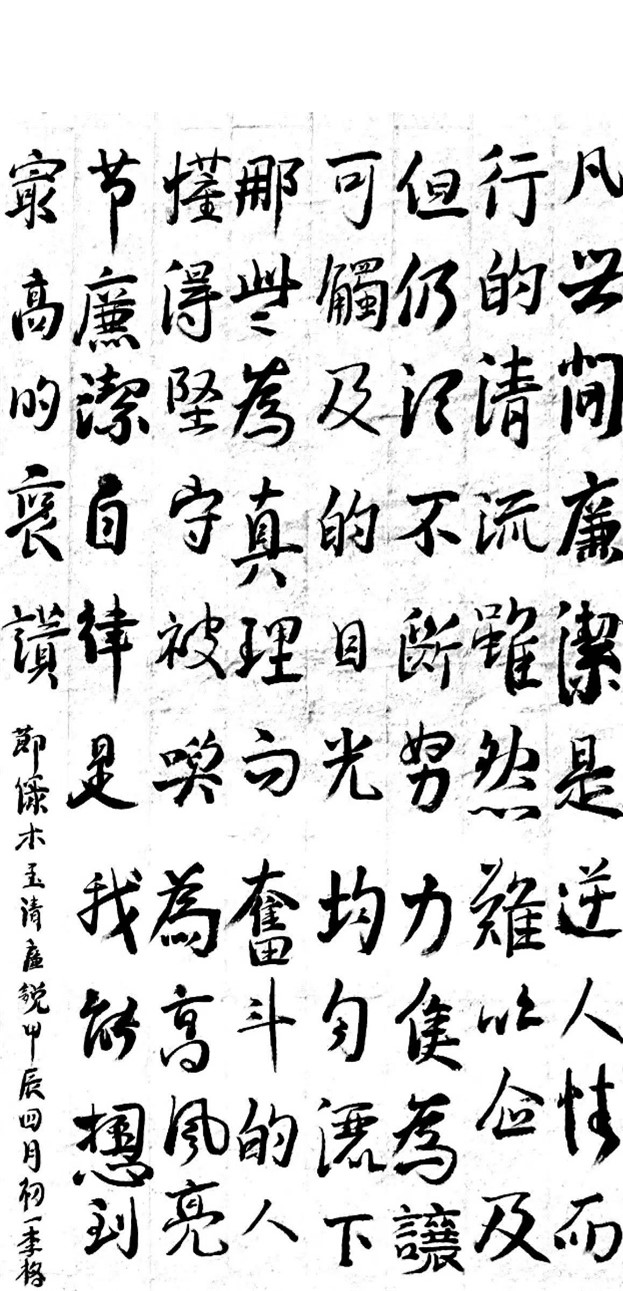 凡世間廉潔是逆人情而
行的清流雖然難以企及
但仍须不斷努力為讓
可觸及的目光均勻灑下
那些為真理而奮斗的人
懂得堅守被喚為高風亮
节廉潔自律是我能想到
最高的褒讚
節錄木玉清廉說甲辰四月初一李